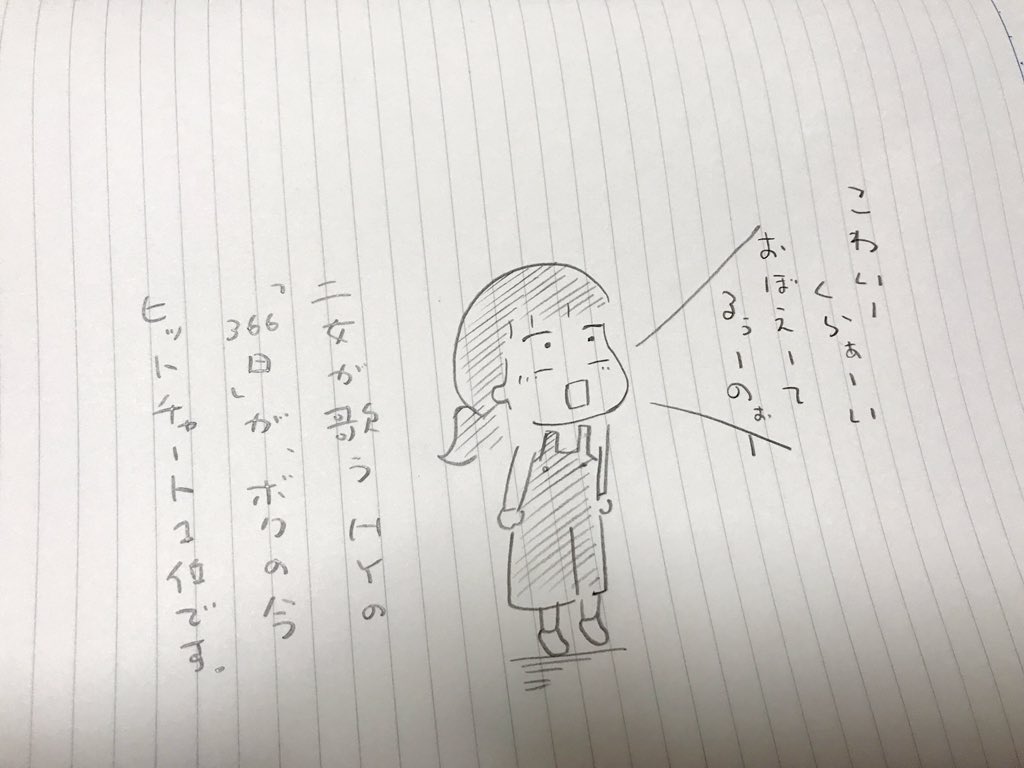 こわいー
くらぁーい
おぼえーて
るぅーのぉー
二女が歌うHYの
「366日」が、ボクの今
ヒットチャート1位です。